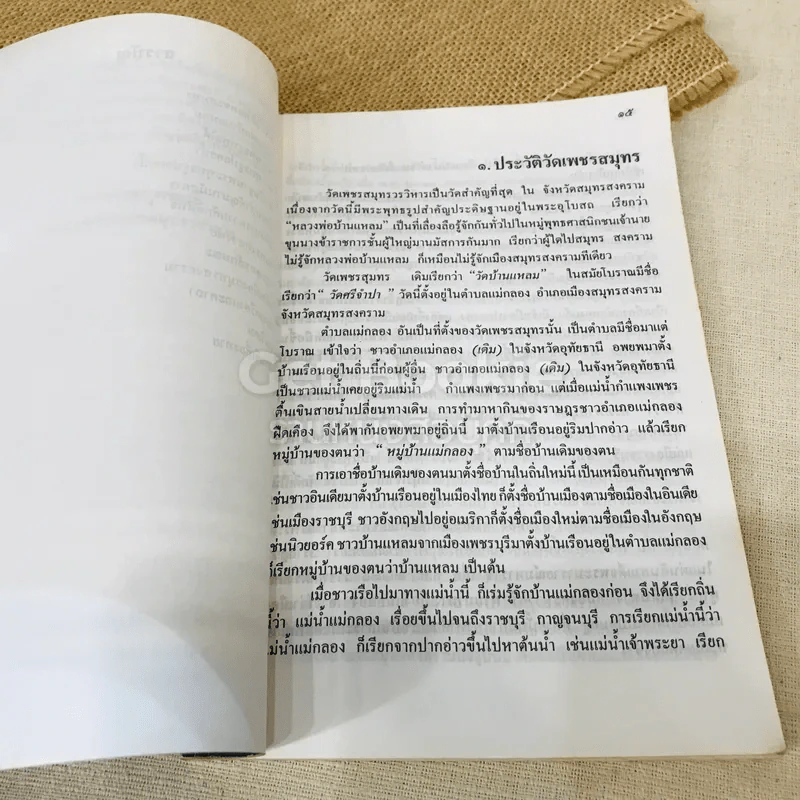 ๑๕
๑. ประวัติวัดเพชรสมุทร
วัดเพชรสมุทรวรวิหารเป็นวัดสำคัญที่สุด ใน จังหวัดสมุทรสงคราม
เนื่องจากวัดนี้มีพระพุทธรูปสำคัญประดิษฐานอยู่ในพระอุโบสถ เรียกว่า
“หลวงพ่อบ้านแหลม” เป็นที่เลื่องลือรู้จักกันทั่วไปในหมู่พุทธศาสนิกชนเจ้านาย
ขุนนางข้าราชการชั้นผู้ใหญ่มานมัสการกันมาก เรียกว่าผู้ใดไปสมุทร สงคราม
ไม่รู้จักหลวงพ่อบ้านแหลม ก็เหมือนไม่รู้จักเมืองสมุทรสงครามทีเดียว
วัดเพชรสุมทร เดิมเรียกว่า “วัดบ้านแหลม” ในสมัยโบราณมีชื่อ
เรียกว่า“ วัดศรีจำปา ” วัดนี้ตั้งอยู่ในตำบลแม่กลอง อำเภอเมืองสมุทรสงคราม
จังหวัดสมุทรสงคราม
ตำบลแม่กลอง อันเป็นที่ตั้งของวัดเพชรสมุทรนั้น เป็นตำบลมีชื่อมาแต่
โบราณ เข้าใจว่า ชาวอำเภอแม่กลอง (เดิม) ในจังหวัดอุทัยธานี อพยพมาตั้ง
บ้านเรือนอยู่ในถิ่นนี้ก่อนผู้อื่น ชาวอำเภอแม่กลอง (เดิม) ในจังหวัดอุทัยธานี
เป็นชาวแม่น้ำเคยอยู่ริมแม่น้ำ กำแพงเพชรมาก่อน แต่เมื่อแม่น้ำกำแพงเพชร
ตื้นเขินสายน้ำเปลี่ยนทางเดิน การทำมาหากินของราษฎรชาวอำเภอแม่กลอง
ฝืดเคือง จึงได้พากันอพยพมาอยู่ถิ่นนี้ มาตั้งบ้านเรือนอยู่ริมปากอ่าว แล้วเรียก
หมู่บ้านของตนว่า “ หมู่บ้านแม่กลอง ” ตามชื่อบ้านเดิมของตน
การเอาชื่อบ้านเดิมของตนมาตั้งชื่อบ้านในถิ่นใหม่นี้ เป็นเหมือนกันทุกชาติ
เช่นชาวอินเดียมาตั้งบ้านเรือนอยู่ในเมืองไทย ก็ตั้งชื่อบ้านเมืองตามชื่อเมืองในอินเดีย
เช่นเมืองราชบุรี ชาวอังกฤษไปอยู่อเมริกาก็ตั้งชื่อเมืองใหม่ตามชื่อเมืองในอังกฤษ
เช่นนิวยอร์ค ชาวบ้านแหลมจากเมืองเพชรบุรีมาตั้งบ้านเรือนอยู่ในตำบลแม่กลอง
ก็เรียกหมู่บ้านของตนว่าบ้านแหลม เป็นต้น
เมื่อชาวเรือไปมาทางแม่น้ำนี้ ก็เริ่มรู้จักบ้านแม่กลองก่อน จึงได้เรียกถิ่น
นี้ว่า แม่น้ำแม่กลอง เรื่อยขึ้นไปจนถึงราชบุรี กาญจนบุรี การเรียกแม่น้ำนี้ว่า
แม่น้ำแม่กลอง ก็เรียกจากปากอ่าวขึ้นไปหาต้นน้ำ เช่นแม่น้ำเจ้าพระยา เรียก